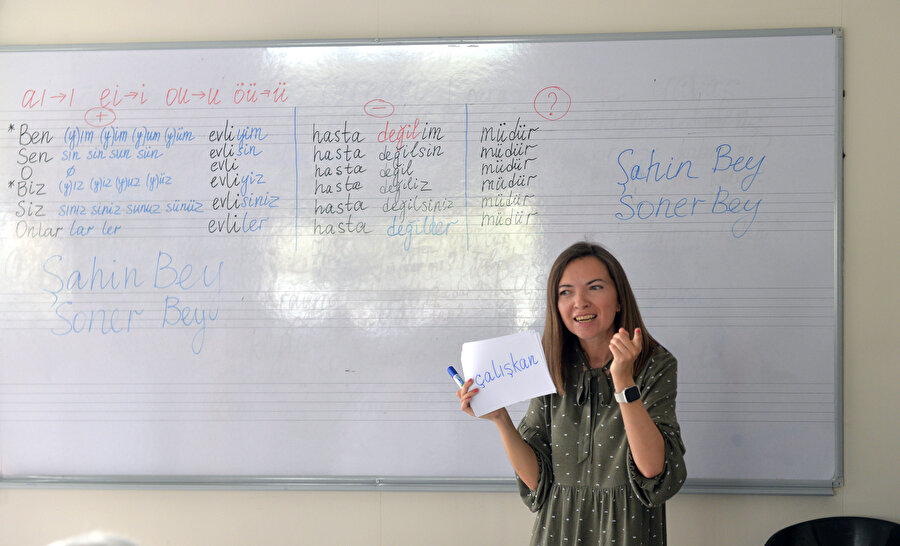 aı→ı ei→i ou→u öü→ü
+ - ?
*Ben (y)ım (y)im (y)um (y)üm evliyim hasta değilim müdür
Sen sın sin sun sün evlisin hasta değilsin müdür
O ø evli hasta değil müdür
*Biz (y)ız (y)iz (y)uz (y)üz evliyiz hasta değiliz müdür
Siz sınız siniz sunuz sünüz evlisiniz hasta değilsiniz müdür
Onlar lar ler evliler hasta değiller müdür
Şahin Bey
Soner Bey
Şahin Bey
Soner Bey
çalışkan